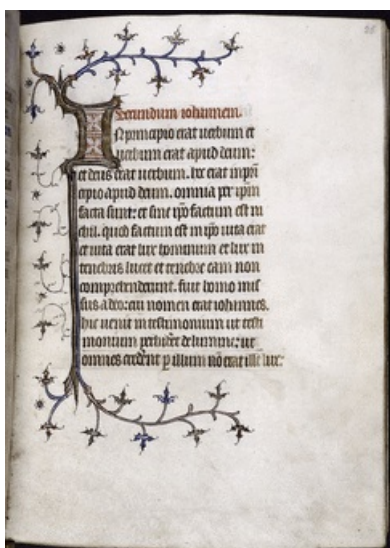 Secundum iohannem.
In principio erat uerbum et
uerbum erat apud deum:
et deus erat uerbum. hoc erat in pri
cipio apud deum. omnia per ipm
facta sunt: et sine ipo factum est ni
chil. quod factum est in ipo uita erat
et uita erat lux hominum et lux in
tenebris lucet et tenebre eam non
comprehenderunt. fuit homo mis
sus a deo: cui nomen erat iohannes.
hic uenit in testimonium ut testi
monium perhiberet de lumine: ut
omnes crederent p illum nō erat ille lux: